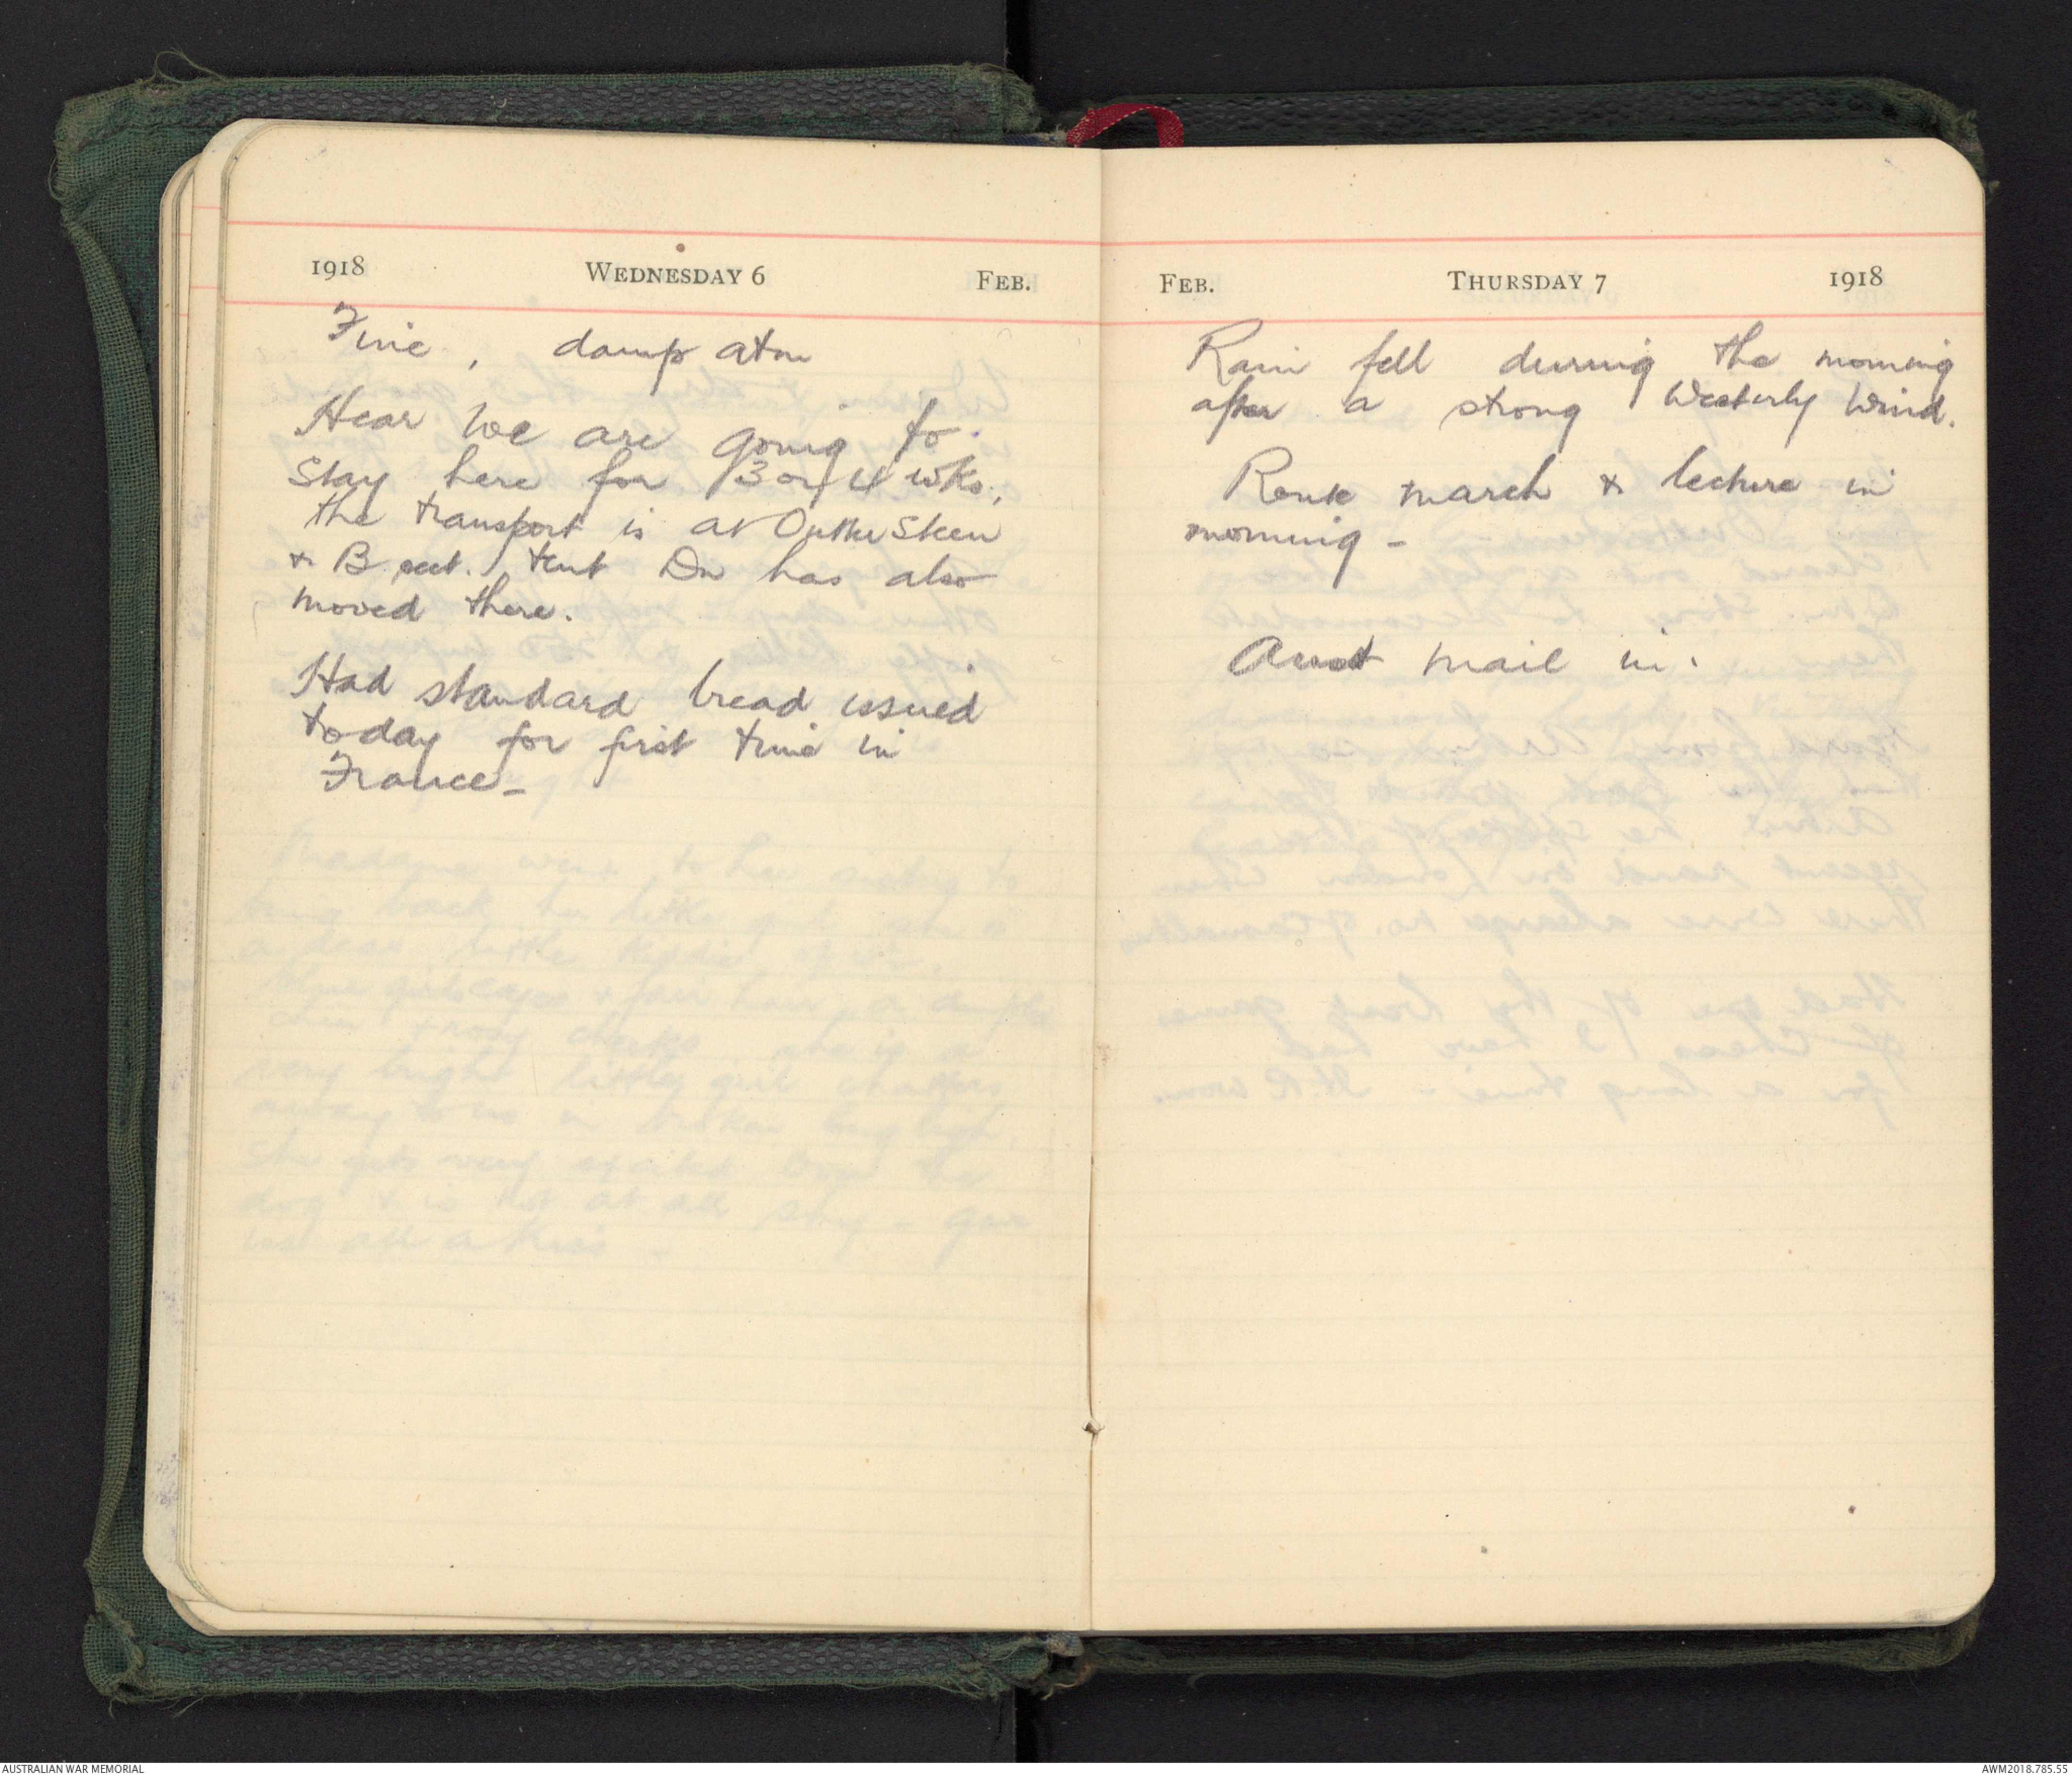 1918 WEDNESDAY 6 FEB.
Fine, damp atm
Hear we are going to
stay here for 3 or 4 wks,
the transport is at Outtersteen
& B sect. tent Dn has also
moved there.
Had standard bread issued
today for first time in
France -
FEB. THURSDAY 7 1918
Rain fell during the morning
after a strong Westerly Wind.
Route march & lecture in
morning -
Aust mail in.
AUSTRALIAN WAR MEMORIAL
AWM2018.785.55